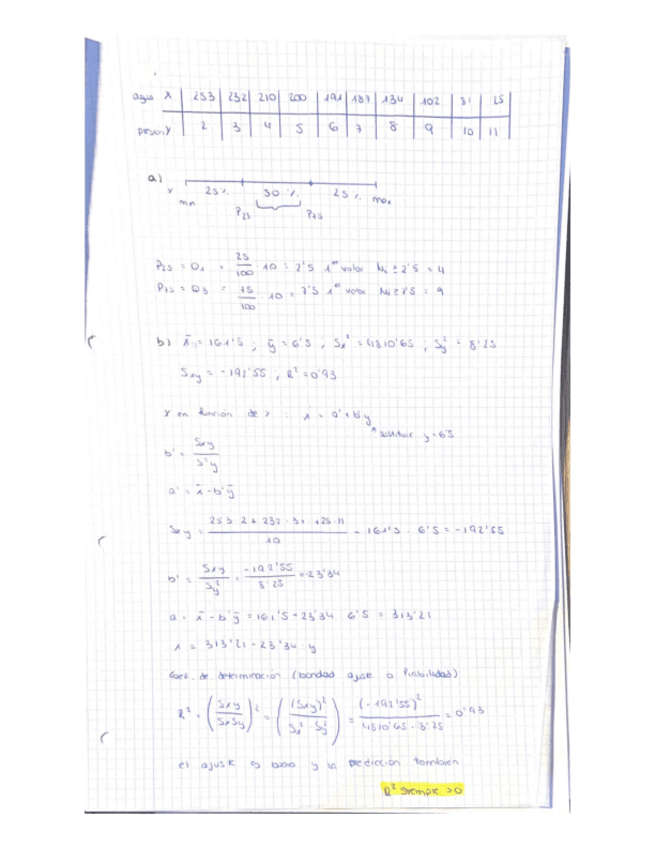 agua x | 253 | 232 | 210 | 200 | 191 | 187 | 134 | 102 | 81 | 25
presión y | 2 | 3 | 4 | 5 | 6 | 7 | 8 | 9 | 10 | 11
a)
x min 25% 50% 25% max
P25 P75
P25 = Q1 = 25/100 · 10 = 2'5 1er valor Ni ≥ 2'5 = 4
P75 = Q3 = 75/100 · 10 = 7'5 1er valor Ni ≥ 7'5 = 9
b) x̄ = 161'5 ; ȳ = 6'5 , Sx² = 4810'65 ; Sy² = 8'25
Sxy = -192'55 ; R² = 0'93
x en función de y : x = a' + b'y
sustituir y = 6'5
b' = Sxy / S²y
a' = x̄ - b'ȳ
Sxy = 253·2 + 232·3 + ... + 25·11 / 10 - 161'5 · 6'5 = -192'55
b' = Sxy / Sy² = -192'55 / 8'25 = -23'34
a = x̄ - b'ȳ = 161'5 + 23'34 · 6'5 = 313'21
x = 313'21 - 23'34 · y
Coef. de determinación (bondad ajuste o fiabilidad)
R² = (Sxy / SxSy)² = ((Sxy)² / Sx² · Sy²) = (-192'55)² / 4810'65 · 8'25 = 0'93
el ajuste es bueno y la predicción también
R² siempre >0